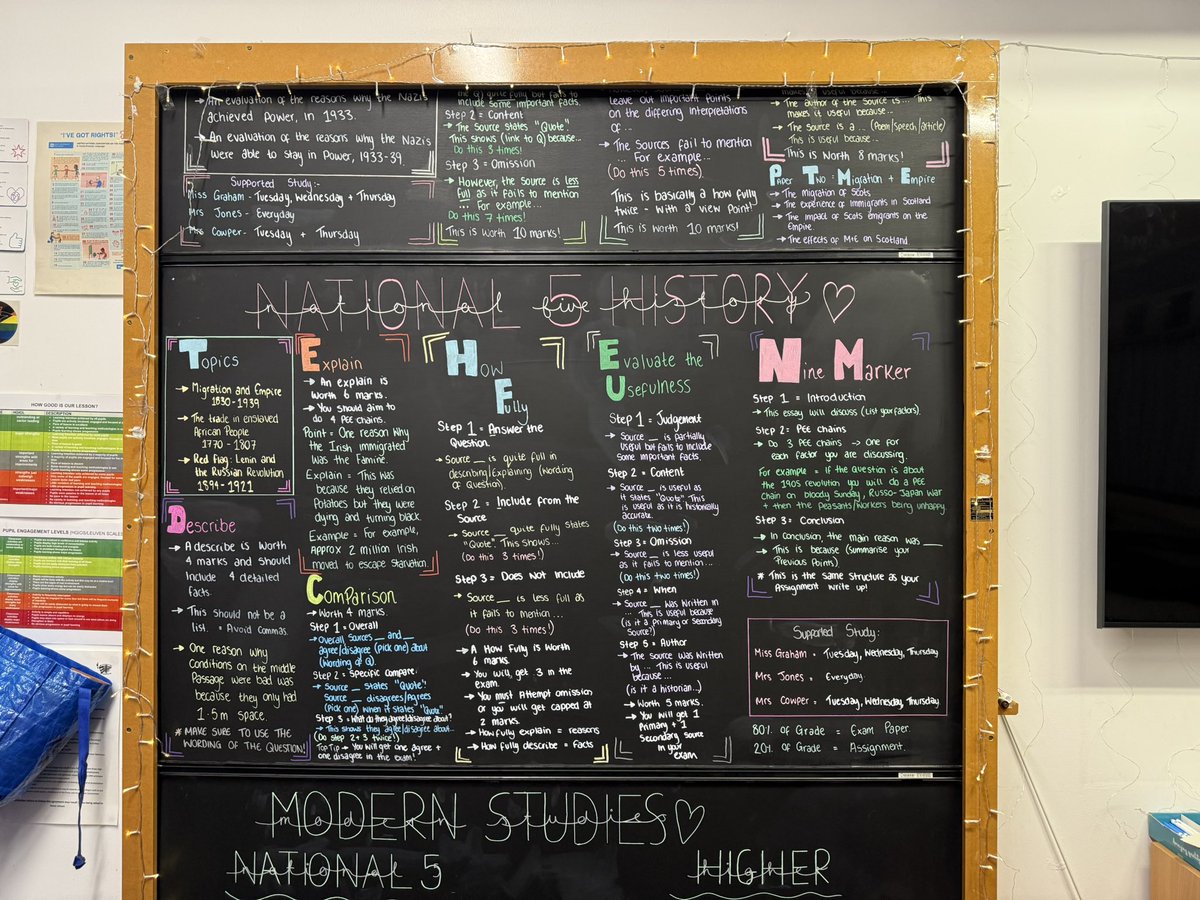 "I'VE GOT RIGHTS!"
HOW GOOD IS OUR LESSON?
DESCRIPTION
PUPIL ENGAGEMENT LEVELS (HGIOS/LEUVEN SCALES)
→ An evaluation of the reasons why the Nazis
achieved Power, in 1933.
→ An evaluation of the reasons why the Nazis
were able to stay in Power, 1933-39.
Supported Study:-
Miss Graham - Tuesday, Wednesday + Thursday
Mrs Jones - Everyday
Mrs Cowper - Tuesday + Thursday
quite fully but fails to
include some important facts.
Step 2 = Content
→ The Source states "Quote"
This shows (link to Q) because...
Do this 3 times!
Step 3 = Omission
→ However, the source is less
full as it fails to mention
... For example...
Do this 7 times!
This is worth 10 marks!
leave out important points
on the differing interpretations
of ...
→ The Sources fail to mention
... For example...
(Do this 5 times)
This is basically a how fully
twice - with a view point!
This is worth 10 marks!
→ The author of the source is... This
makes it useful because...
→ The source is a ... (Poem/Speech/article)
This is useful because...
→ This is Worth 8 marks!
Paper Two: Migration + Empire
→ The Migration of Scots
→ The experience of Immigrants in Scotland
→ The impact of Scots emigrants on the
Empire.
→ The effects of M+E on Scotland
NATIONAL 5 HISTORY
national five history
Topics
→ Migration and Empire
1830-1939
→ The trade in enslaved
African People
1770 - 1807
→ Red flag: Lenin and
the Russian Revolution
1894-1921
Describe
→ A describe is worth
4 marks and should
include 4 detailed
facts.
→ This should not be a
list. = Avoid commas.
→ One reason why
conditions on the middle
Passage were bad was
because they only had
1.5m space.
* MAKE SURE TO USE THE
WORDING OF THE QUESTION!
Explain
→ An explain is
Worth 6 marks.
→ You should aim to
do 4 PEE chains.
Point = One reason why
the Irish immigrated
was the Famine.
Explain = This was
because they relied on
Potatoes but they were
dying and turning black.
Example = For example,
Approx 2 million Irish
moved to escape starvation.
Comparison
→ Worth 4 marks.
Step 1 = Overall
→ Overall Sources __ and __
agree/disagree (pick one) about
(Wording of Q).
Step 2 = Specific Compare.
→ Source __ states "Quote".
Source __ disagrees/Agrees
(Pick one) when it states "Quote"
Step 3 = What do they agree/disagree about?
→ This shows they agree/disagree about...
(Do step 2+3 twice!)
Top Tip → You will get one agree +
one disagree in the exam!
How Fully
Step 1 = Answer the
Question.
→ Source __ is quite full in
describing/Explaining (Wording
of Question).
Step 2 = Include from the
Source
→ Source __ quite fully states
"Quote". This shows...
(Do this 3 times!)
Step 3 = Does Not Include
→ Source __ is less full as
it fails to mention...
(Do this 3 times!)
→ A How Fully is Worth
6 marks.
→ You will get 3 in the
exam.
→ You must Attempt omission
Or you will get capped at
2 marks.
→ How fully explain = reasons
→ How fully describe = Facts
Evaluate the Usefulness
Step 1 = Judgement
→ Source __ is partially
useful but fails to include
Some important facts.
Step 2 = Content
→ Source __ is useful as
it states "Quote". This
is useful as it is historically
accurate.
(Do this two times!)
Step 3 = Omission
→ Source __ is less useful
as it fails to mention...
(Do this two times!)
Step 4 = When
→ Source __ was Written
in ... This is useful because
(is it a Primary or Secondary
Source?)
Step 5 = Author
→ The Source was Written
by... This is useful
because...
(is it a historian...)
→ Worth 5 marks.
→ You will get 1
Primary + 1
Secondary source
in your
exam
Nine Marker
Step 1 = Introduction
→ This essay will discuss (List your factors).
Step 2 = PEE chains
→ Do 3 PEE chains → one for
each factor you are discussing.
For example = If the question is about
the 1905 revolution you will do a PEE
Chain on bloody Sunday, Russo-Japan War
+ then the peasants/workers being unhappy.
Step 3 = Conclusion
→ In Conclusion, the main reason was ___
→ This is because (summarise your
Previous Points)
* This is the same structure as your
Assignment write up!
Supported Study:
Miss Graham = Tuesday, Wednesday, Thursday
Mrs Jones = Everyday.
Mrs Cowper = Tuesday, Wednesday, Thursday
80% of Grade = Exam Paper.
20% of Grade = Assignment.
MODERN STUDIES
modern studies
NATIONAL 5
national
HIGHER
higher